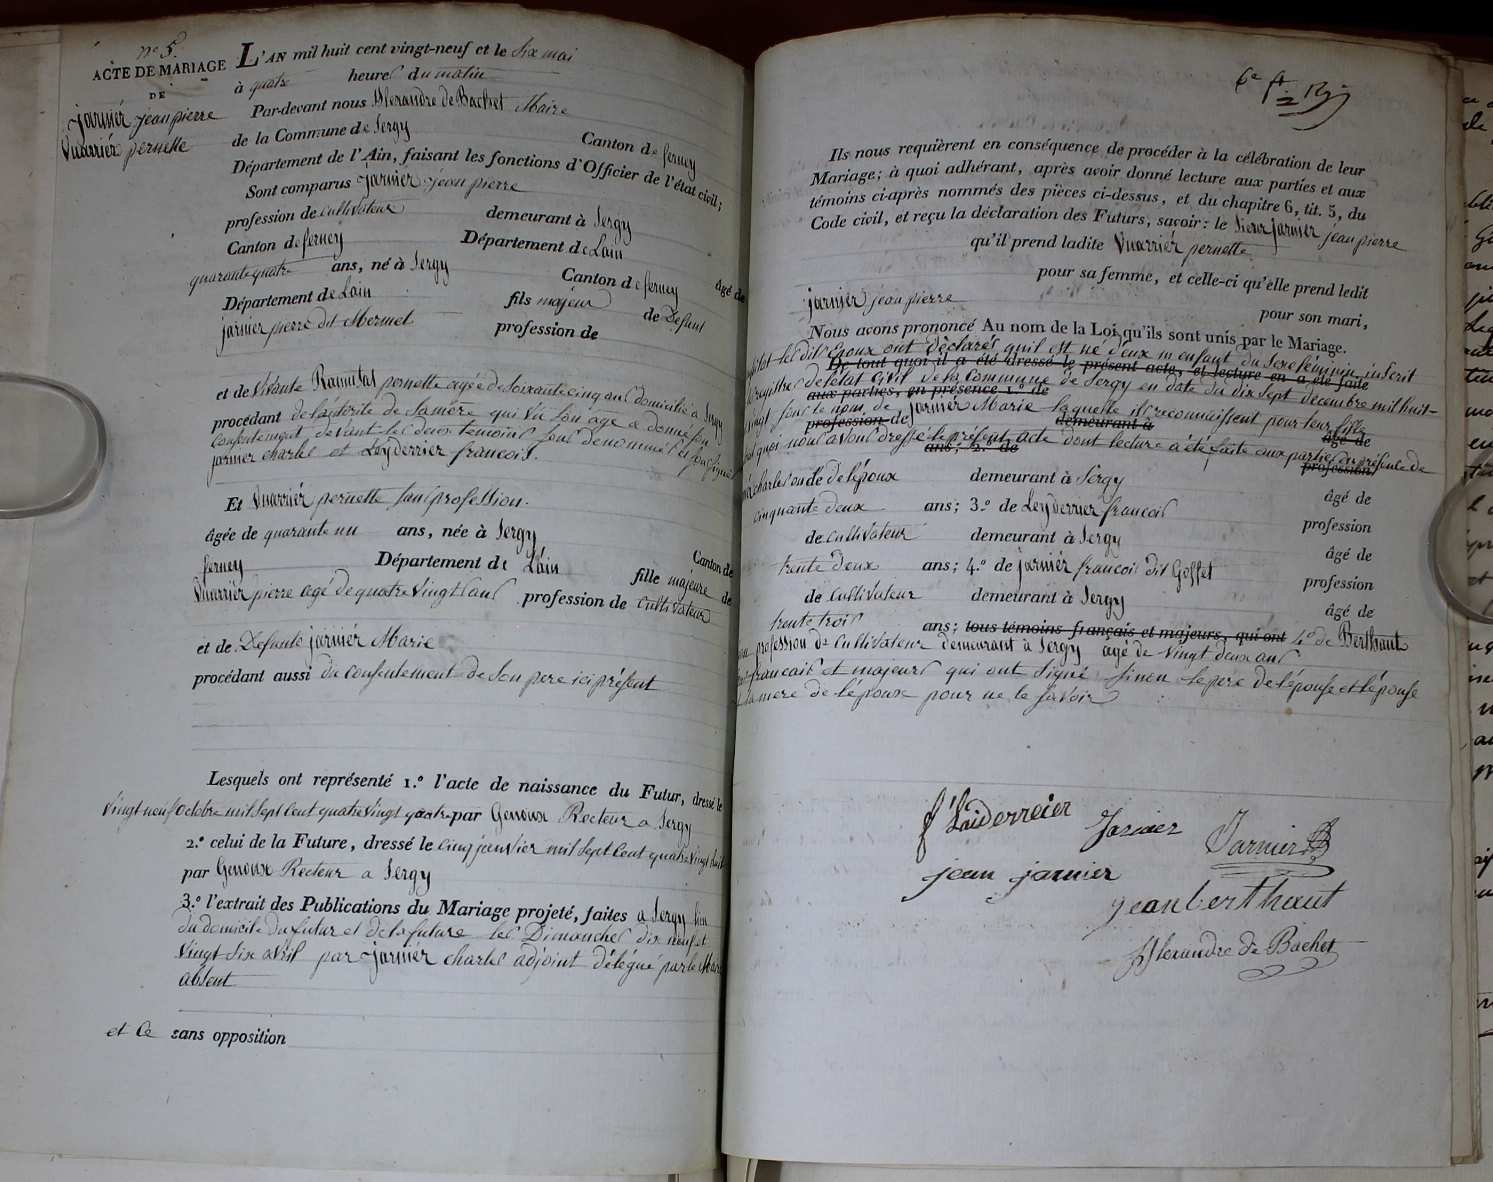 n° 5.
ACTE DE MARIAGE
DE
jarnier jean pierre
Vuarriér pernette
L'AN mil huit cent vingt-neuf et le six mai
à quatre heures du matin
Par-devant nous Alexandre de Bachet Maire
de la Commune de Sergy Canton de ferney
Département de l'Ain, faisant les fonctions d'Officier de l'état civil;
Sont comparus jarnier jean pierre
profession de cultivateur demeurant à Sergy
Canton de ferney Département de Lain âgé de
quarante quatre ans, né à Sergy Canton de ferney
Département de Lain fils majeur de Defunt
jarnier pierre dit Mermet profession de
et de Vivante pernette agée de soixante cinq ans domiciliée à Sergy
procédant de lautorité de sa mère qui vu son age a donné son
consentement devant les deux temoins sous denommés et soussignés
jarnier charles et Leyderrier francois.
Et Vuarriér pernette sans profession.
âgée de quarante un ans, née à Sergy Canton de
ferney Département de Lain fille majeure de
Vuarriér pierre agé de quatre vingt ans profession de cultivateur
et de Defunte jarniér Marie
procédant aussi du consentement de son pere ici présent
Lesquels ont représenté 1.° l'acte de naissance du Futur, dressé le
vingt neuf octobre mil sept cent quatre vingt quatre par Genoux Recteur a Sergy
2.° celui de la Future, dressé le cinq janvier mil sept cent quatre vingt huit
par Genoux Recteur a Sergy
3.° l'extrait des Publications du Mariage projeté, faites a Sergy lieu
du domicile du futur et de la future les Dimanches dix neuf et
vingt six avril par jarniér charles adjoint délégué par le Maire
absent
et ce sans opposition
Ils nous requièrent en conséquence de procéder à la célébration de leur
Mariage; à quoi adhérant, après avoir donné lecture aux parties et aux
témoins ci-après nommés des pièces ci-dessus, et du chapitre 6, tit. 5, du
Code civil, et reçu la déclaration des Futurs, savoir: le Sieur jarnier jean pierre
qu'il prend ladite Vuarriér pernette
pour sa femme, et celle-ci qu'elle prend ledit
jarniér jean pierre pour son mari,
Nous avons prononcé Au nom de la Loi qu'ils sont unis par le Mariage.
les dits Epoux ont déclarés quil est né deux un enfant du sexe féminin inscrit
De tout quoi il a été dressé le présent acte, et lecture en a été faite
de letat civil de la Commune de Sergy en date du dix sept decembre mil huit-
aux parties, en présence 1.° de
vingt sous le nom de jarnier Marie laquelle ils reconnaissent pour leur fille
profession de demeurant à âgé de
quoi nous avons dressé le présent acte dont lecture a été faite aux parties en présence de
ans; 2.° de profession
charles oncle de lépoux demeurant à Sergy âgé de
cinquante deux ans; 3.° de Leyderrier francois profession
de cultivateur demeurant à Sergy âgé de
trente deux ans; 4.° de jarniér francois dit Goffet profession
de cultivateur demeurant à Sergy âgé de
trente trois ans; tous témoins français et majeurs, qui ont 4° de Berthaut
profession de cultivateur demeurant à Sergy agé de vingt deux ans
francais et majeurs qui ont signé sinon le pere de lépouse et lépouse
la mere de lépoux pour ne le savoir
f Laiderreier
Jarnier
Jarnier
jean jarnier
jean berthaut
Alexandre de Bachet